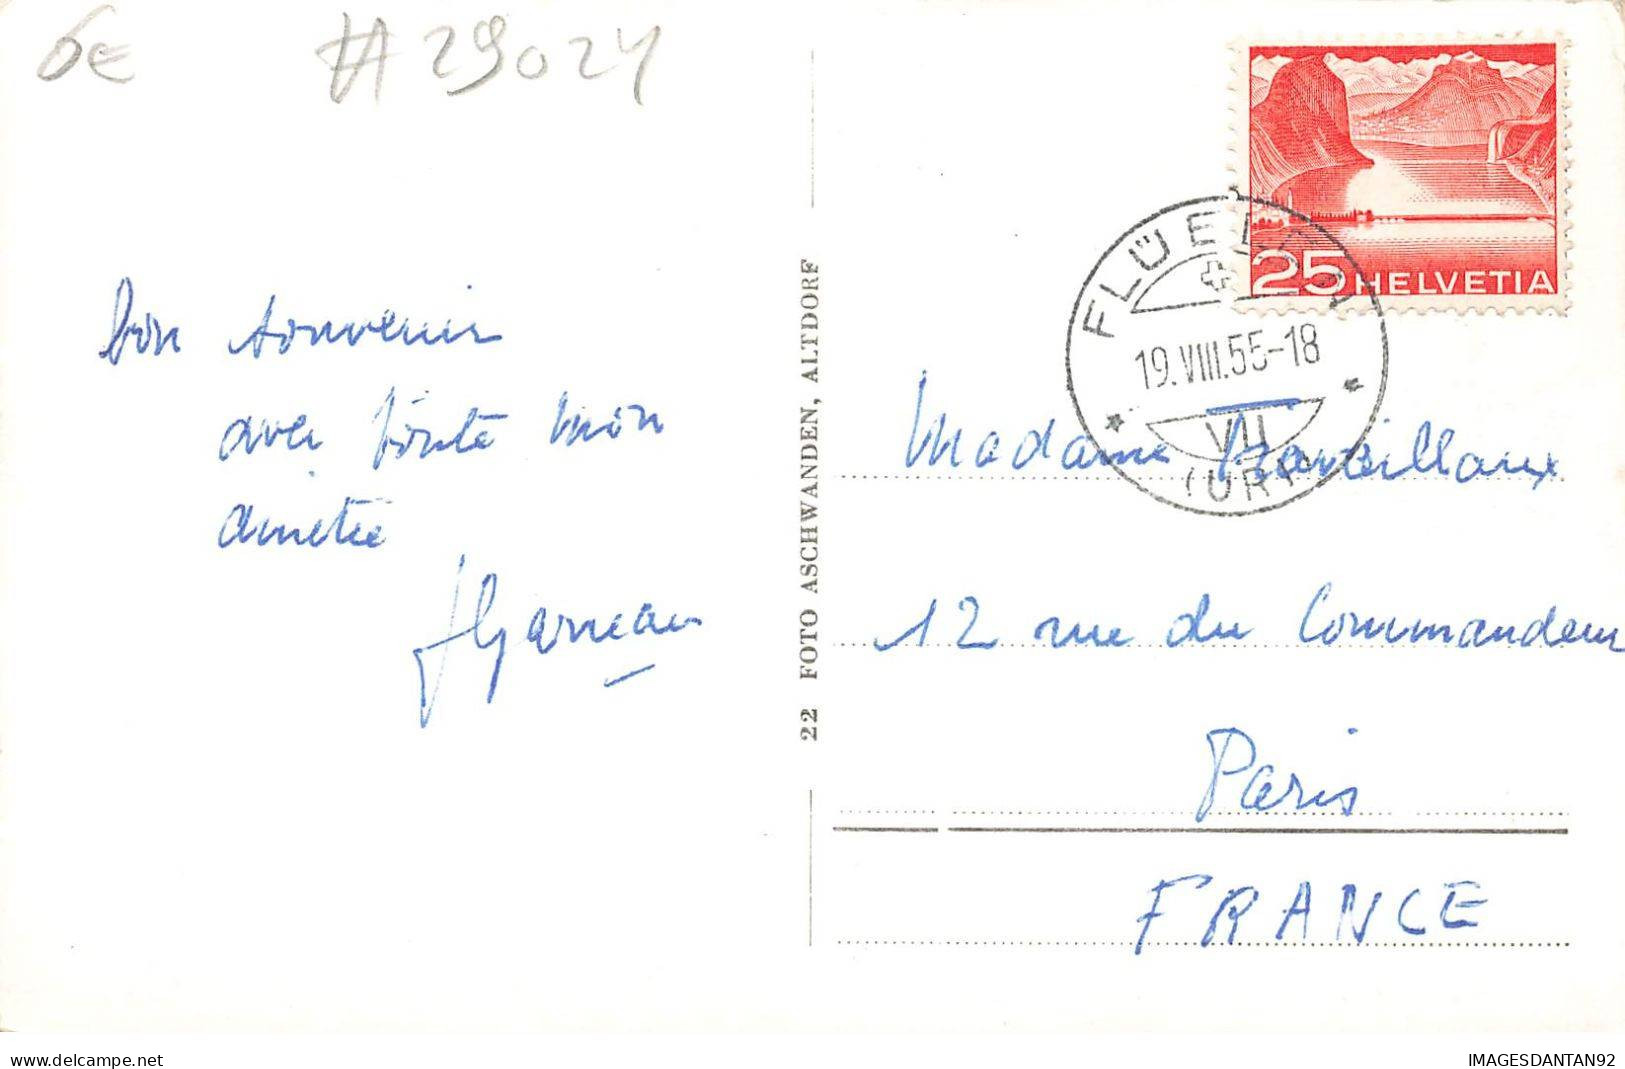 6€ #29024
25 HELVETIA
FLÜELEN
19.VIII.55-18
VII
(URI)
Bon souvenir
avec toute mon
amitié
JGarneau
22 FOTO ASCHWANDEN, ALTDORF
Madame
12 rue du Commandeur
Paris
FRANCE
delcampe.net
IMAGESDANTAN92